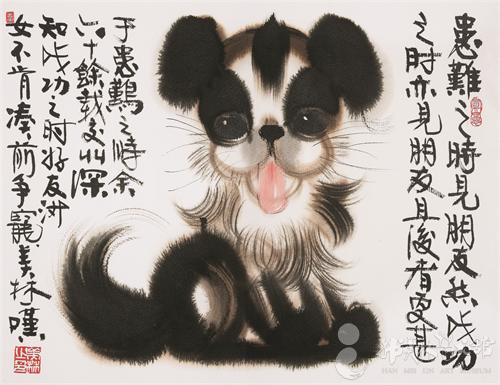 患難之時見朋友然成功
之时亦見朋友且後者更甚
于患難之時余
六十餘载交深
知成功之时好友
女不肯凑前争美林
HAN MEI LIN ART MUSEUM